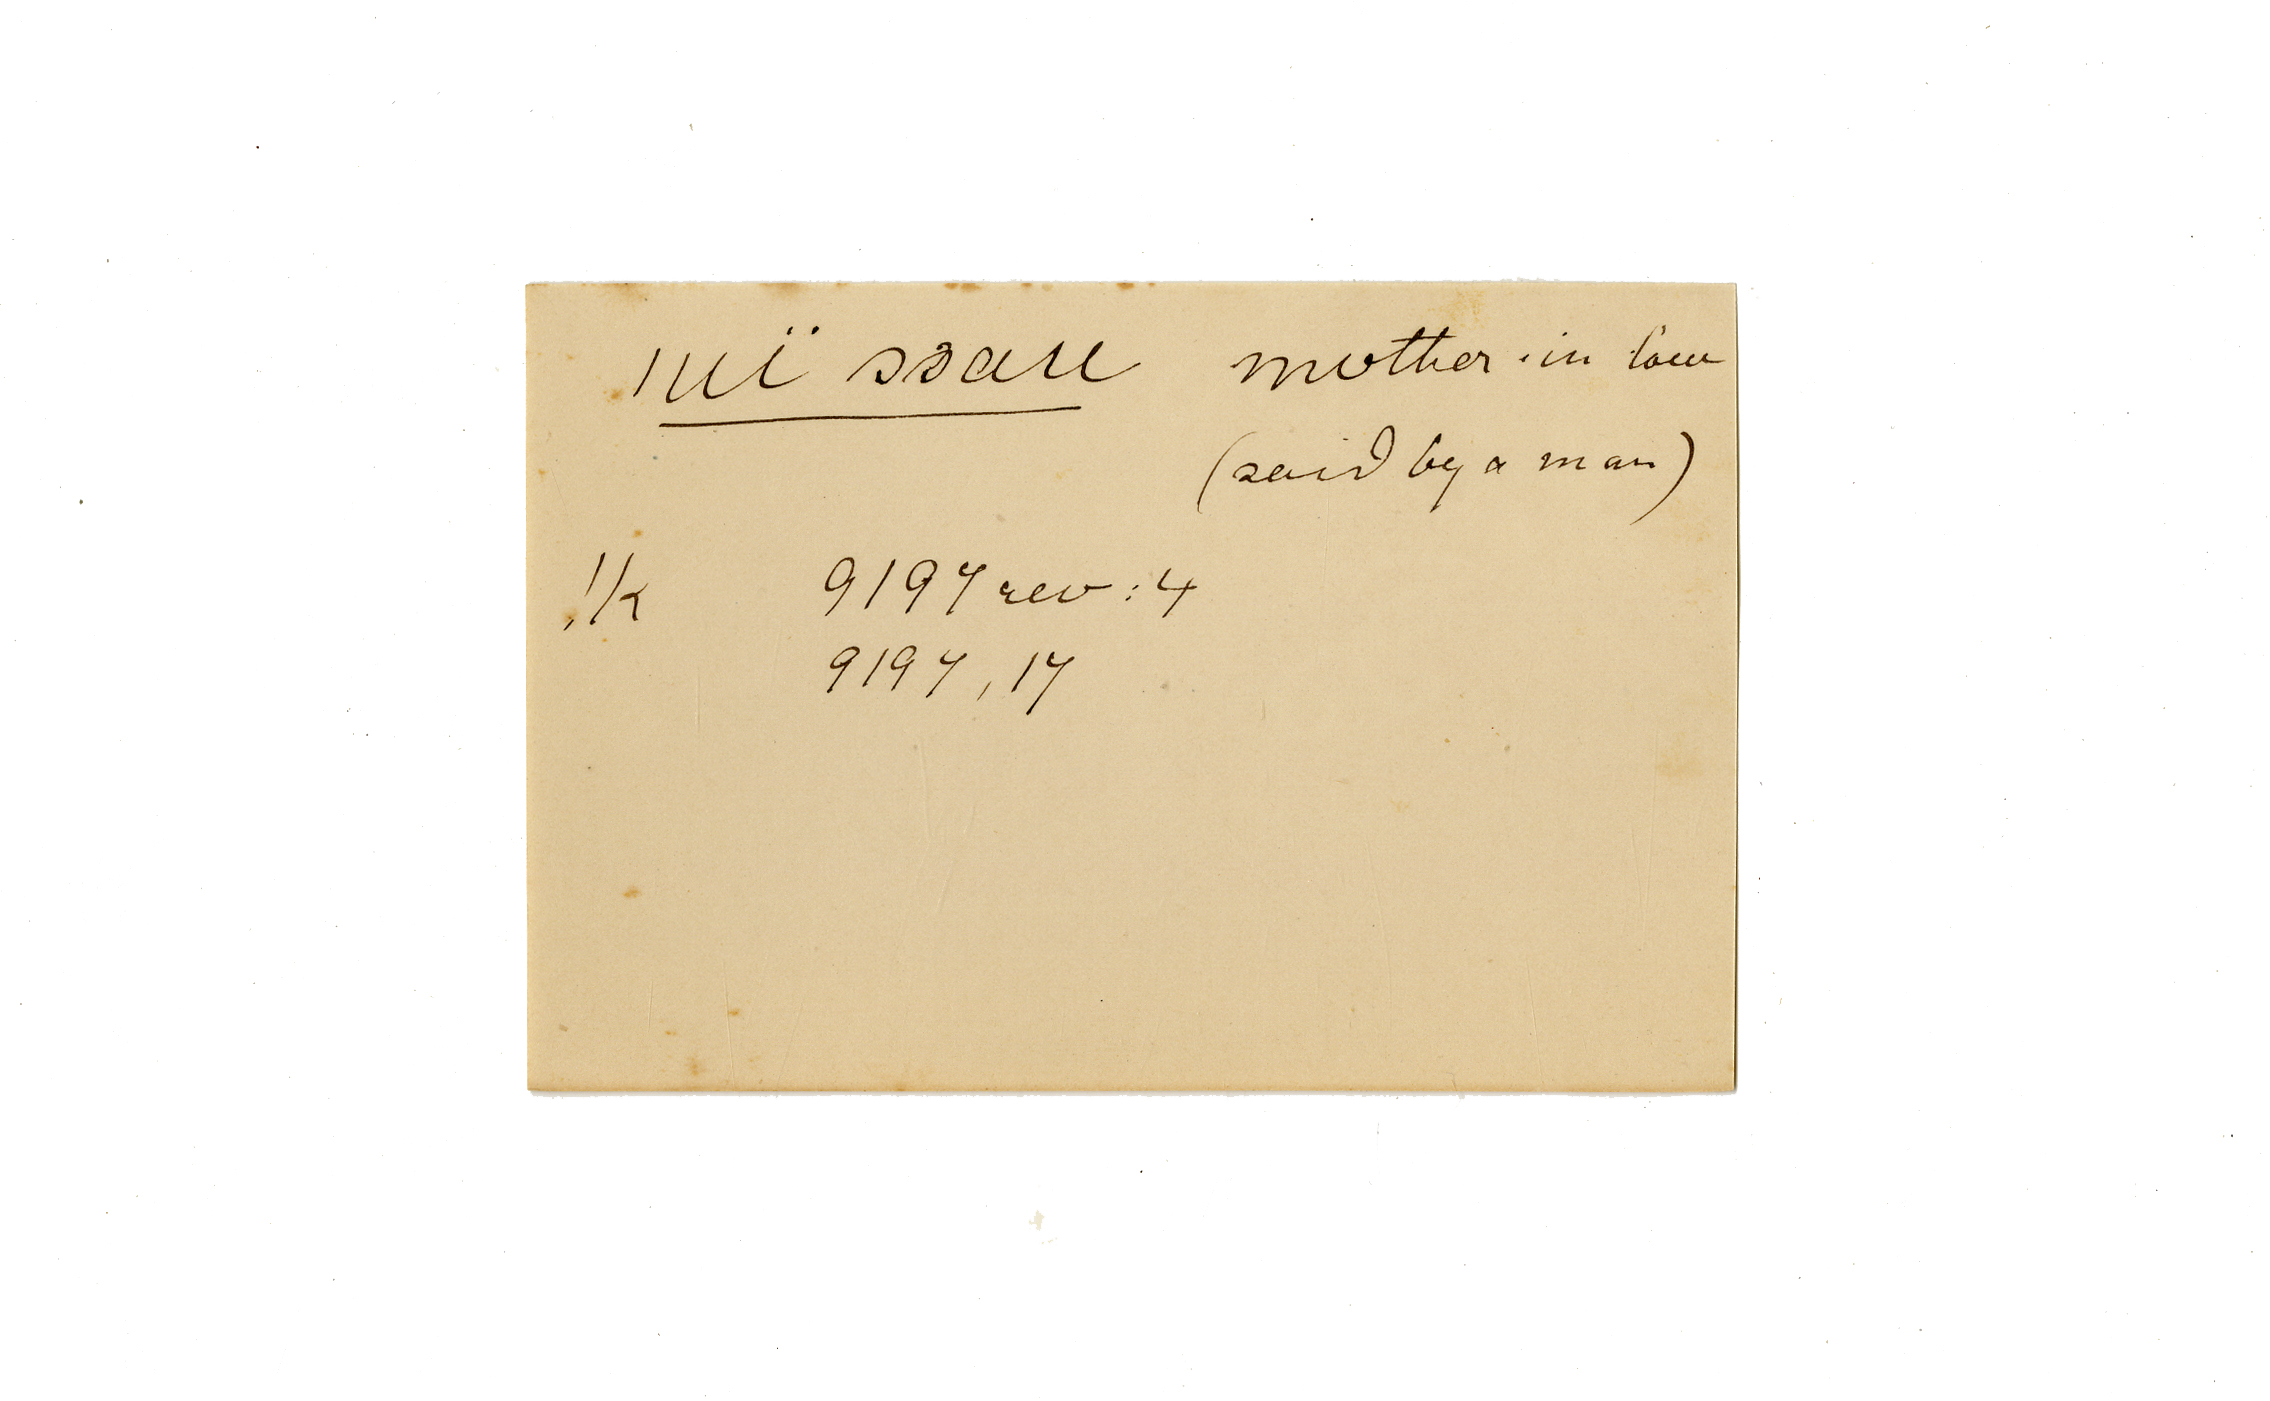 /uï ssau mother-in law
(said by a man)
!k 9197 rev: 4
9197, 17